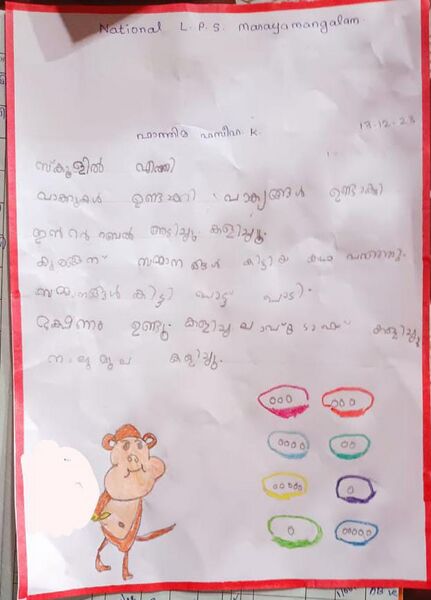 National L.P.S. Manayamangalam
ഫാത്തിമ ഹസീഹ K.
13-12-23
സ്കൂളിൽ എത്തി
വാക്കുകൾ ഉണ്ടാക്കി വാക്യങ്ങൾ ഉണ്ടാക്കി
ഇൻറർ ബെൽ അടിച്ചു കളിച്ചു.
കുരങ്ങന് സമ്മാനങ്ങൾ കിട്ടിയ കഥ പറഞ്ഞു.
സമ്മാനങ്ങൾ കിട്ടി പാട്ട് പാടി.
ഭക്ഷണം ഉണ്ടു കളിച്ചു കളിച്ചു
കളിച്ചു.